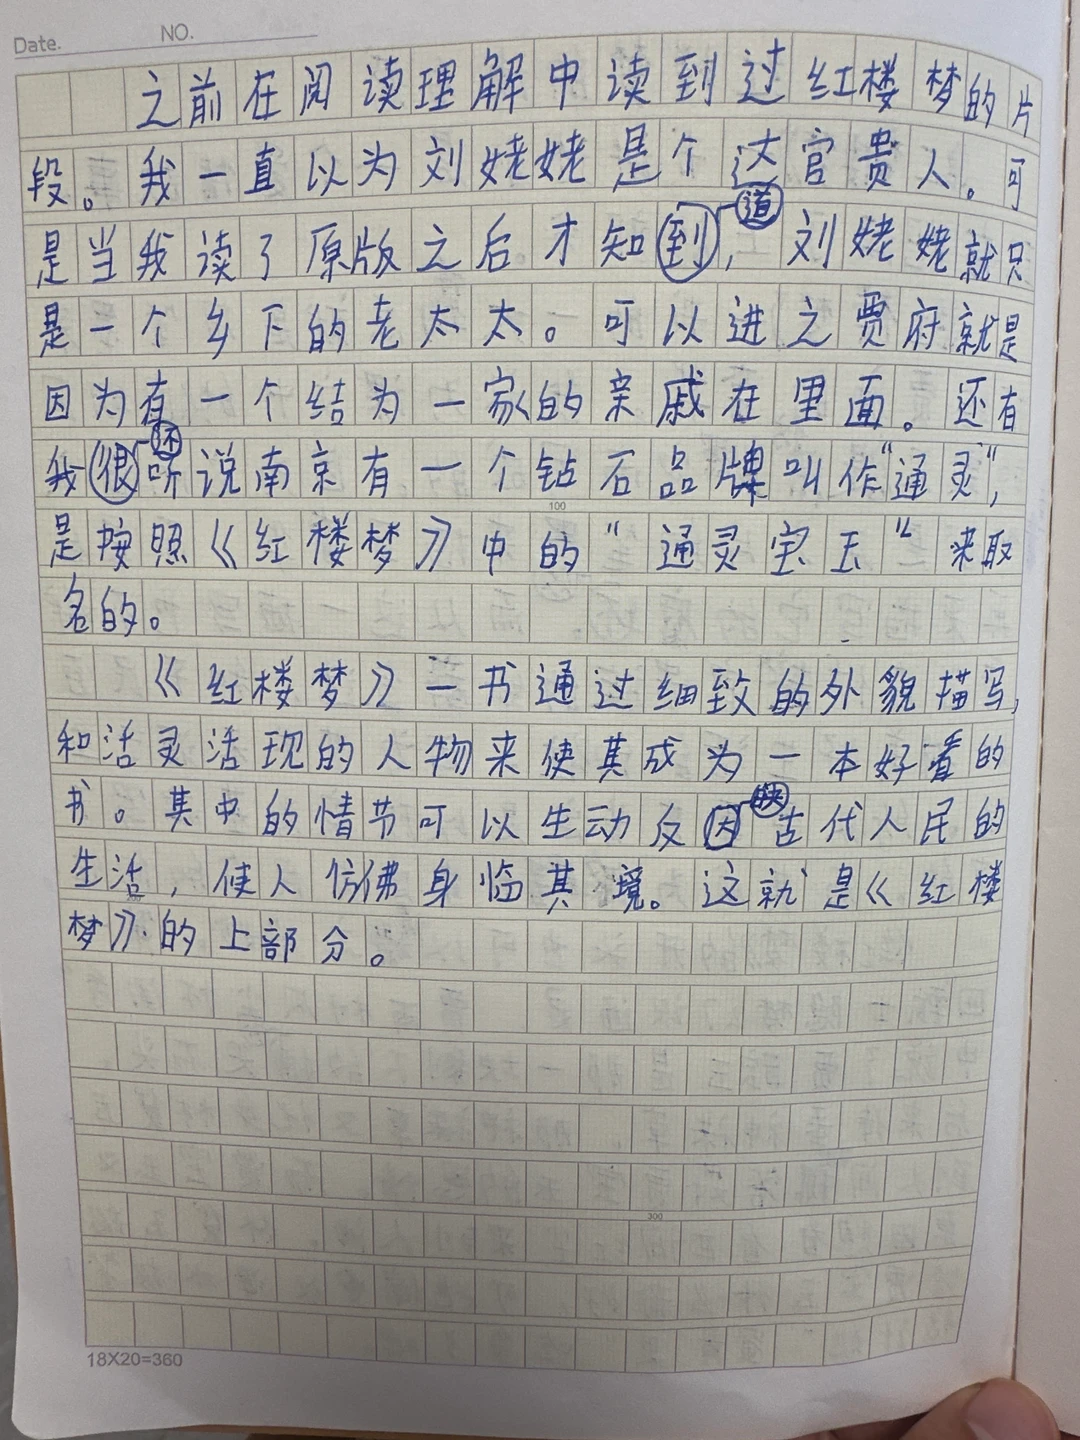 Date. NO.
之前在阅读理解中读到过红楼梦的片
段。我一直以为刘姥姥是个达官贵人。可
道
是当我读了原版之后才知到,刘姥姥就只
是一个乡下的老太太。可以进之贾府就是
因为有一个结为一家的亲戚在里面。还有
还
我很听说南京有一个钻石品牌叫作“通灵”,
100
是按照《红楼梦》中的“通灵宝玉”来取
名的。
《红楼梦》一书通过细致的外貌描写,
和活灵活现的人物来使其成为一本好看的
映
书。其中的情节可以生动反因古代人民的
生活,使人仿佛身临其境。这就是《红楼
梦》的上部分。
300
18X20=360